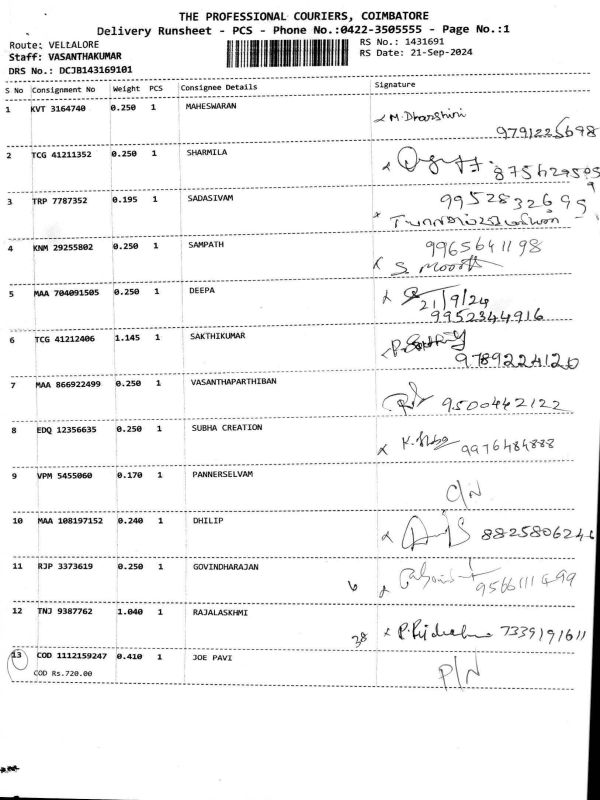 THE PROFESSIONAL COURIERS, COIMBATORE
Delivery Runsheet - PCS - Phone No.:0422-3505555 - Page No.:1
Route: VELLALORE
RS No.: 1431691
Staff: VASANTHAKUMAR
RS Date: 21-Sep-2024
DRS No.: DCJB143169101
S No Consignment No Weight PCS Consignee Details Signature
1 KVT 3164740 0.250 1 MAHESWARAN M. Dharshini
9791225698
2 TCG 41211352 0.250 1 SHARMILA
3 TRP 7787352 0.195 1 SADASIVAM
4 KNM 29255802 0.250 1 SAMPATH 9965641198
5 MAA 704091505 0.250 1 DEEPA 21/9/24
9952344916
6 TCG 41212406 1.145 1 SAKTHIKUMAR
9789224120
7 MAA 866922499 0.250 1 VASANTHAPARTHIBAN 9500442122
8 EDQ 12356635 0.250 1 SUBHA CREATION 9976484888
9 VPM 5455060 0.170 1 PANNERSELVAM
C/N
10 MAA 108197152 0.240 1 DHILIP
11 RJP 3373619 0.250 1 GOVINDHARAJAN
6
12 TNJ 9387762 1.040 1 RAJALASKHMI
38 7339191611
13 COD 1112159247 0.410 1 JOE PAVI
P/N
COD Rs.720.00